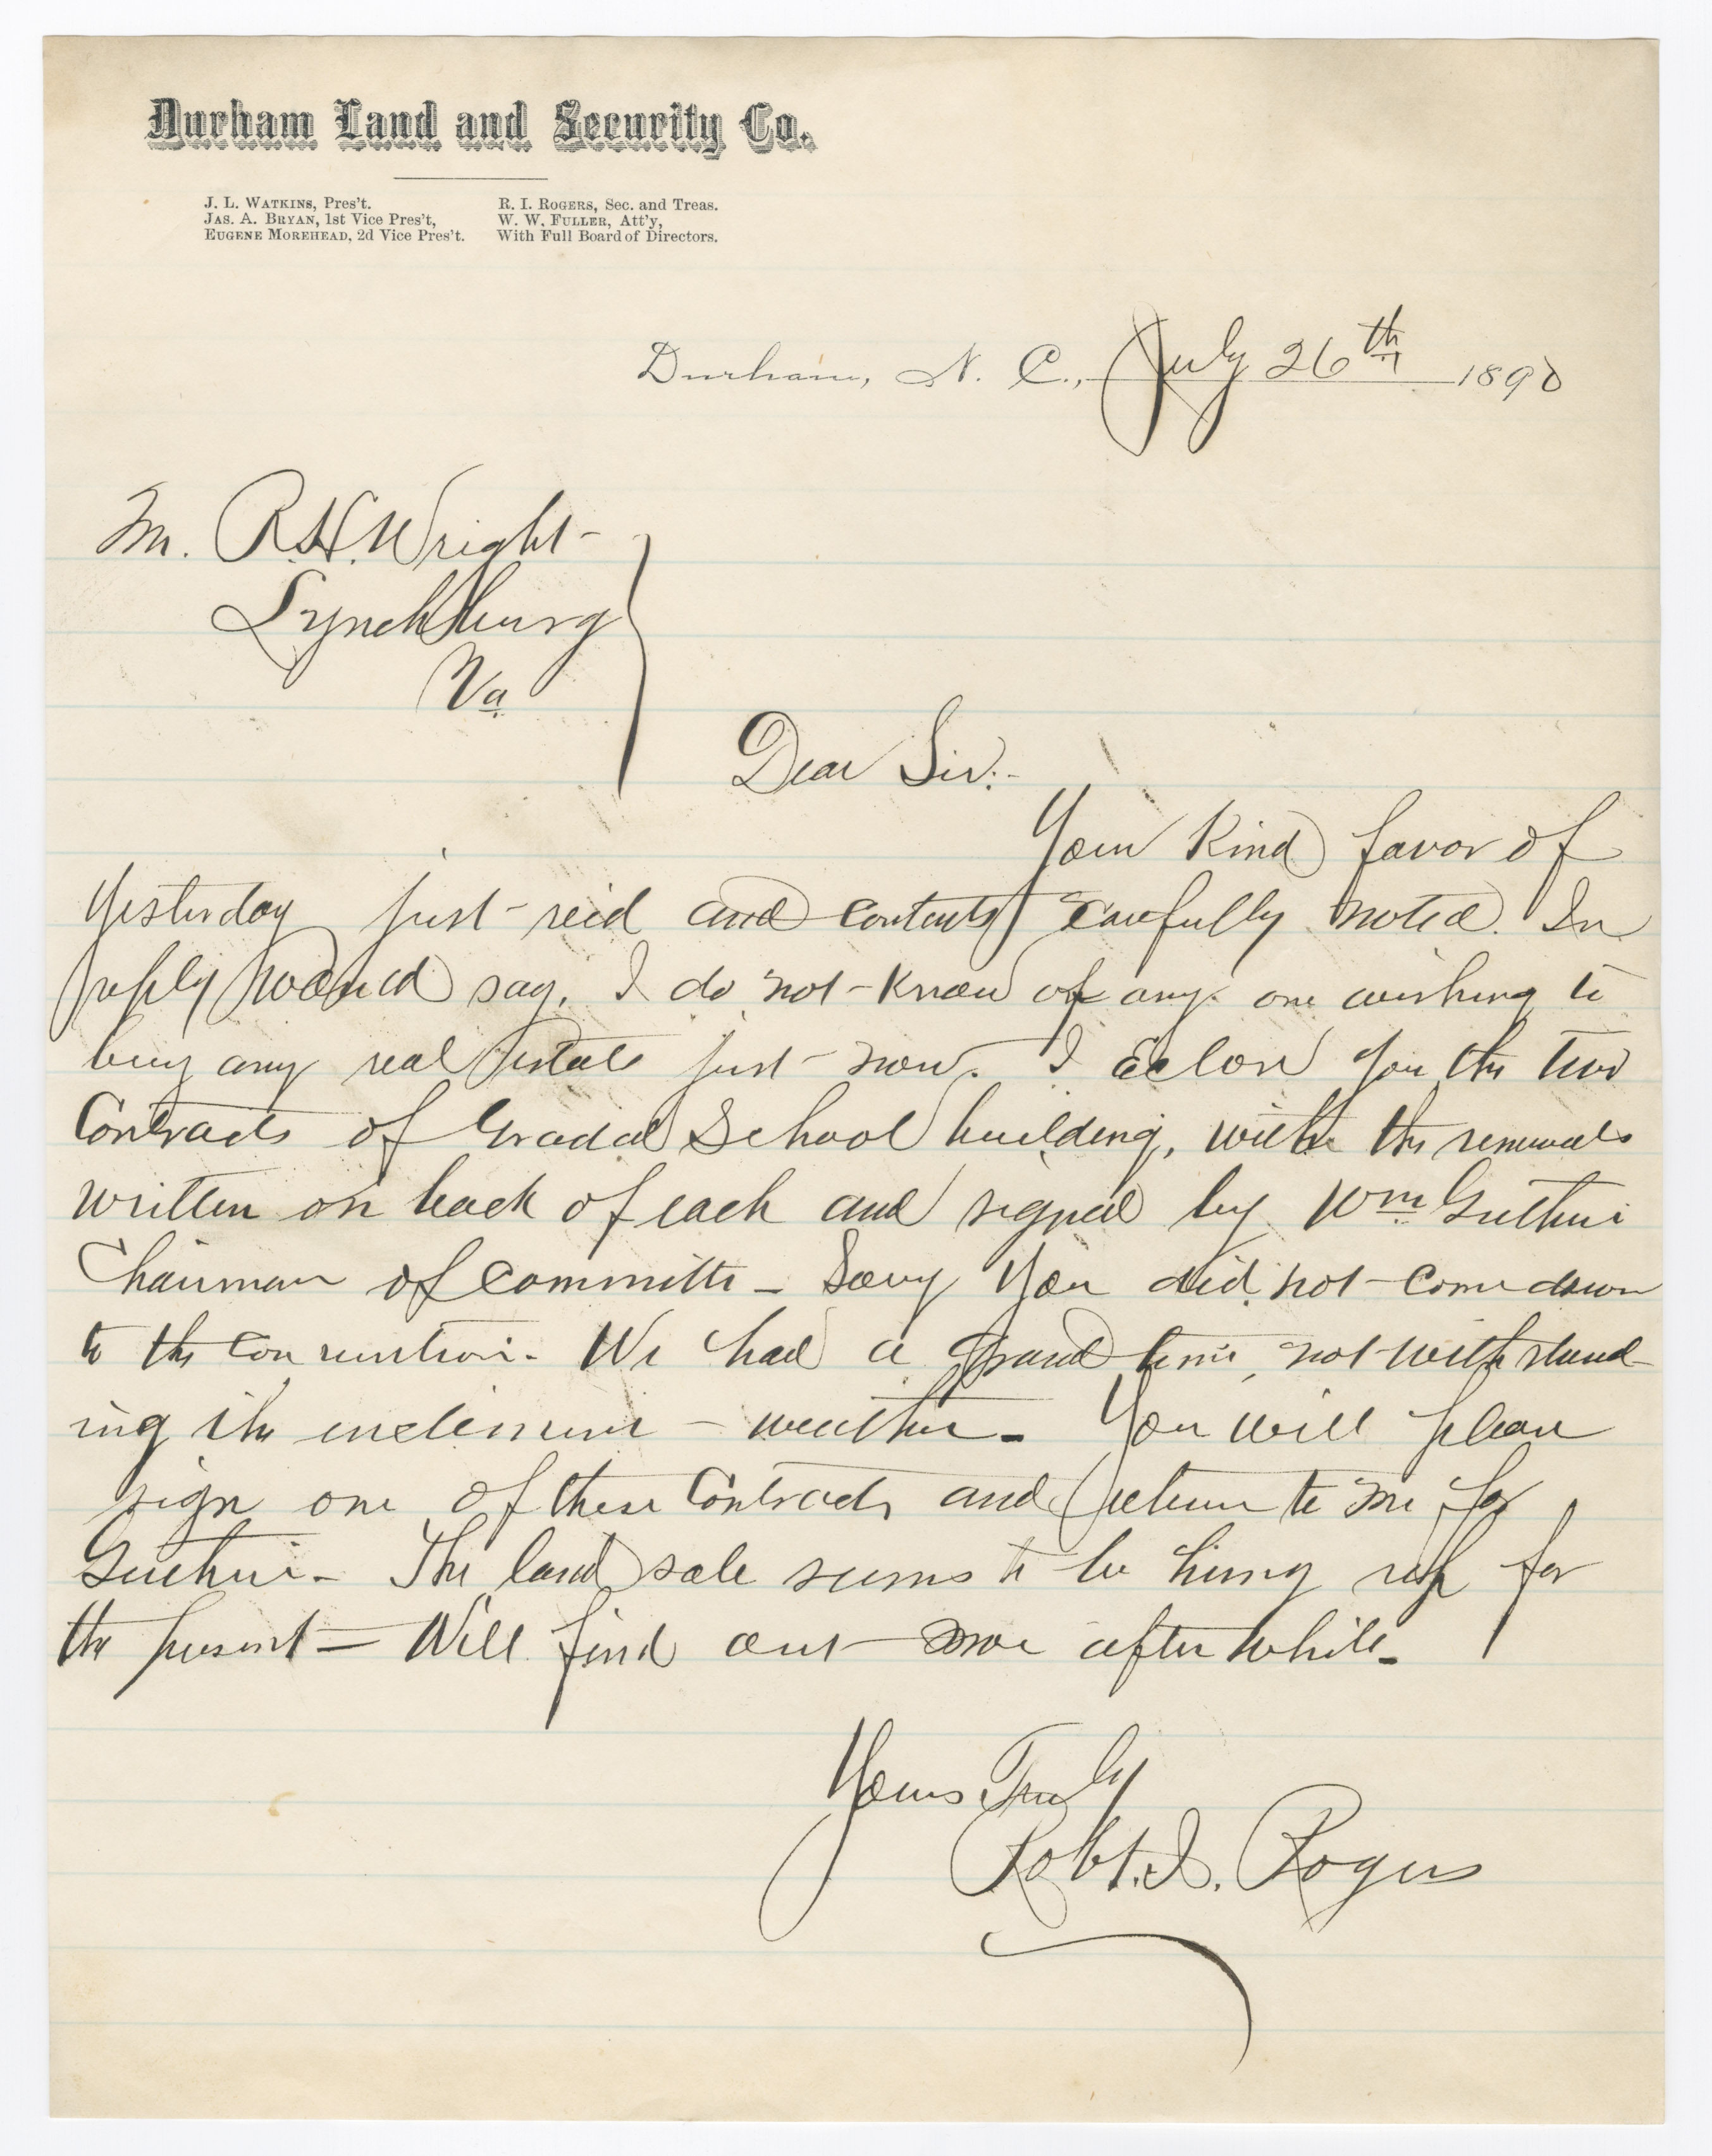 Durham Land and Security Co.
J. L. Watkins, Pres't.
Jas. A. Bryan, 1st Vice Pres't,
Eugene Morehead, 2d Vice Pres't.
R. I. Rogers, Sec. and Treas.
W. W. Fuller, Att'y,
With Full Board of Directors.
Durham, N. C., July 26th 1890
Mr. R.H. Wright-
Lynchburg
Va
Dear Sir:-
Your Kind favor of
Yesterday just recd and contents carefully noted. In
reply would say, I do not Know of any one wishing to
buy any real estate just now. I Eclose you the two
Contracts of Graded School building, with the renewals
written on back of each and signed by Wm Guthrie
Chairman of Committee - Sorry You did not come down
to the convention. We had a grand time, not withstand-
ing the inclement weather - You will please
sign one of these Contracts and return to me for
Guthrie - The land sale seems to be hung up for
the present - Will find out more after while -
Yours Truly
Robt. I. Rogers